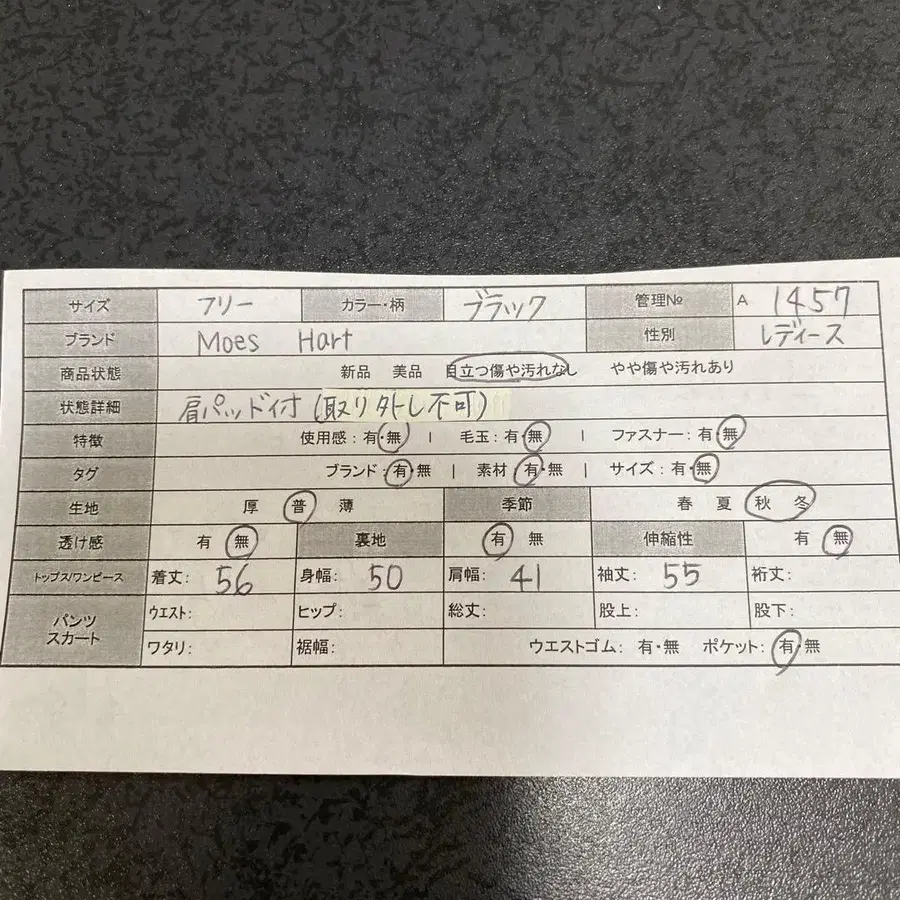 サイズ フリー カラー・柄 ブラック 管理№ A 1457
ブランド Moes Hart 性別 レディース
商品状態 新品 美品 目立つ傷や汚れなし やや傷や汚れあり
状態詳細 肩パッド付(取り外し不可)
特徴 使用感：有・無 | 毛玉：有・無 | ファスナー：有・無
タグ ブランド：有・無 | 素材：有・無 | サイズ：有・無
生地 厚 普 薄 季節 春 夏 秋 冬
透け感 有 無 裏地 有 無 伸縮性 有 無
トップス/ワンピース 着丈： 56 身幅： 50 肩幅： 41 袖丈： 55 裄丈：
パンツ スカート ウエスト： ヒップ： 総丈： 股上： 股下：
ワタリ： 裾幅： ウエストゴム： 有・無 ポケット：有・無